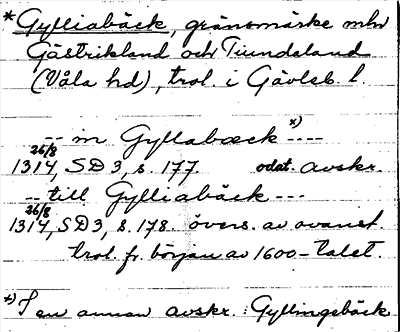 *Gylliabäck, gränsmärke mln
Gästrikland och Tiundaland
(Våla hd), trol. i Gävleb. l.
-- in Gyllabæck x) ----
26/8
1314, SD 3, s. 177. odat. avskr.
-- till Gylliabäck ---
26/8
1314, SD 3, s. 178. övers. av ovanst.
trol. fr. början av 1600-talet.
x) I en annan avskr.: Gyllingebäck